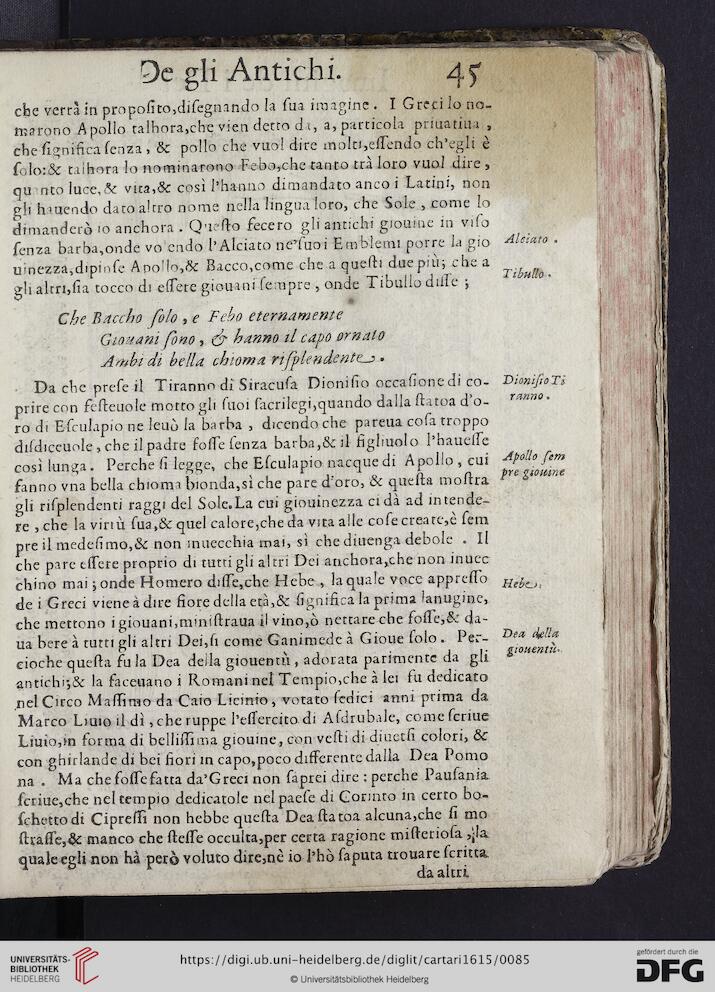 De gli Antichi. 45
che verrà in proposito,disegnando la sua imagine. I Greci lo no-
marono Apollo talhora,che vien detto da, a, particola priuatiua,
che significa senza, & pollo che vuol dire molti,essendo ch'egli è
solo:& talhora lo nominarono Febo,che tanto trà loro vuol dire,
quanto luce,& vita,& così l'hanno dimandato anco i Latini, non
gli hauendo dato altro nome nella lingua loro, che Sole, come lo
dimanderò io anchora. Questo fecero gli antichi giouine in viso
senza barba,onde vo endo l'Alciato ne'suoi Emblemi porre la gio
uinezza,dipinse Apollo,& Bacco,come che a questi due più; che a
gli altri,sia tocco di essere giouani sempre, onde Tibullo disse;
Alciato.
Tibullo.
Che Baccho solo, e Febo eternamente
Giouani sono, & hanno il capo ornato
Ambi di bella chioma risplendente.
Da che prese il Tiranno di Siracusa Dionisio occasione di co-
prire con festeuole motto gli suoi sacrilegi,quando dalla statoa d'o-
ro di Esculapio ne leuò la barba, dicendo che pareua cosa troppo
disdiceuole, che il padre fosse senza barba,& il figliuolo l'hauesse
così lunga. Perche si legge, che Esculapio nacque di Apollo, cui
fanno vna bella chioma bionda,sì che pare d'oro, & questa mostra
gli risplendenti raggi del Sole.La cui giouinezza ci dà ad intende-
re, che la virtù sua,& quel calore,che da vita alle cose create,è sem
pre il medesimo,& non inuecchia mai, sì che diuenga debole. Il
che pare essere proprio di tutti gli altri Dei anchora,che non inuec
chino mai; onde Homero disse,che Hebe, la quale voce appresso
de i Greci viene à dire fiore della età,& significa la prima lanugine,
che mettono i giouani,ministraua il vino,ò nettare che fosse,& da-
ua bere à tutti gli altri Dei,si come Ganimede à Gioue solo. Per-
cioche questa fu la Dea della giouentù, adorata parimente da gli
antichi;& la faceuano i Romani nel Tempio,che à lei fu dedicato
nel Circo Massimo da Caio Licinio, votato sedici anni prima da
Marco Liuio il dì, che ruppe l'essercito di Asdrubale, come scriue
Liuio,in forma di bellissima giouine, con vesti di diuersi colori, &
con ghirlande di bei fiori in capo,poco differente dalla Dea Pomo
na. Ma che fosse fatta da'Greci non saprei dire: perche Pausania
scriue,che nel tempio dedicatole nel paese di Corinto in certo bo-
schetto di Cipressi non hebbe questa Dea statoa alcuna,che si mo
strasse,& manco che stesse occulta,per certa ragione misteriosa,;la
quale egli non hà però voluto dire,nè io l'hò saputa trouare scritta
da altri
Dionisio Ti
ranno.
Apollo sem
pre giouine
Hebe.
Dea della
giouentù.
UNIVERSITÄTS-
BIBLIOTHEK
HEIDELBERG
https://digi.ub.uni-heidelberg.de/diglit/cartari1615/0085
© Universitätsbibliothek Heidelberg
gefördert durch die
DFG